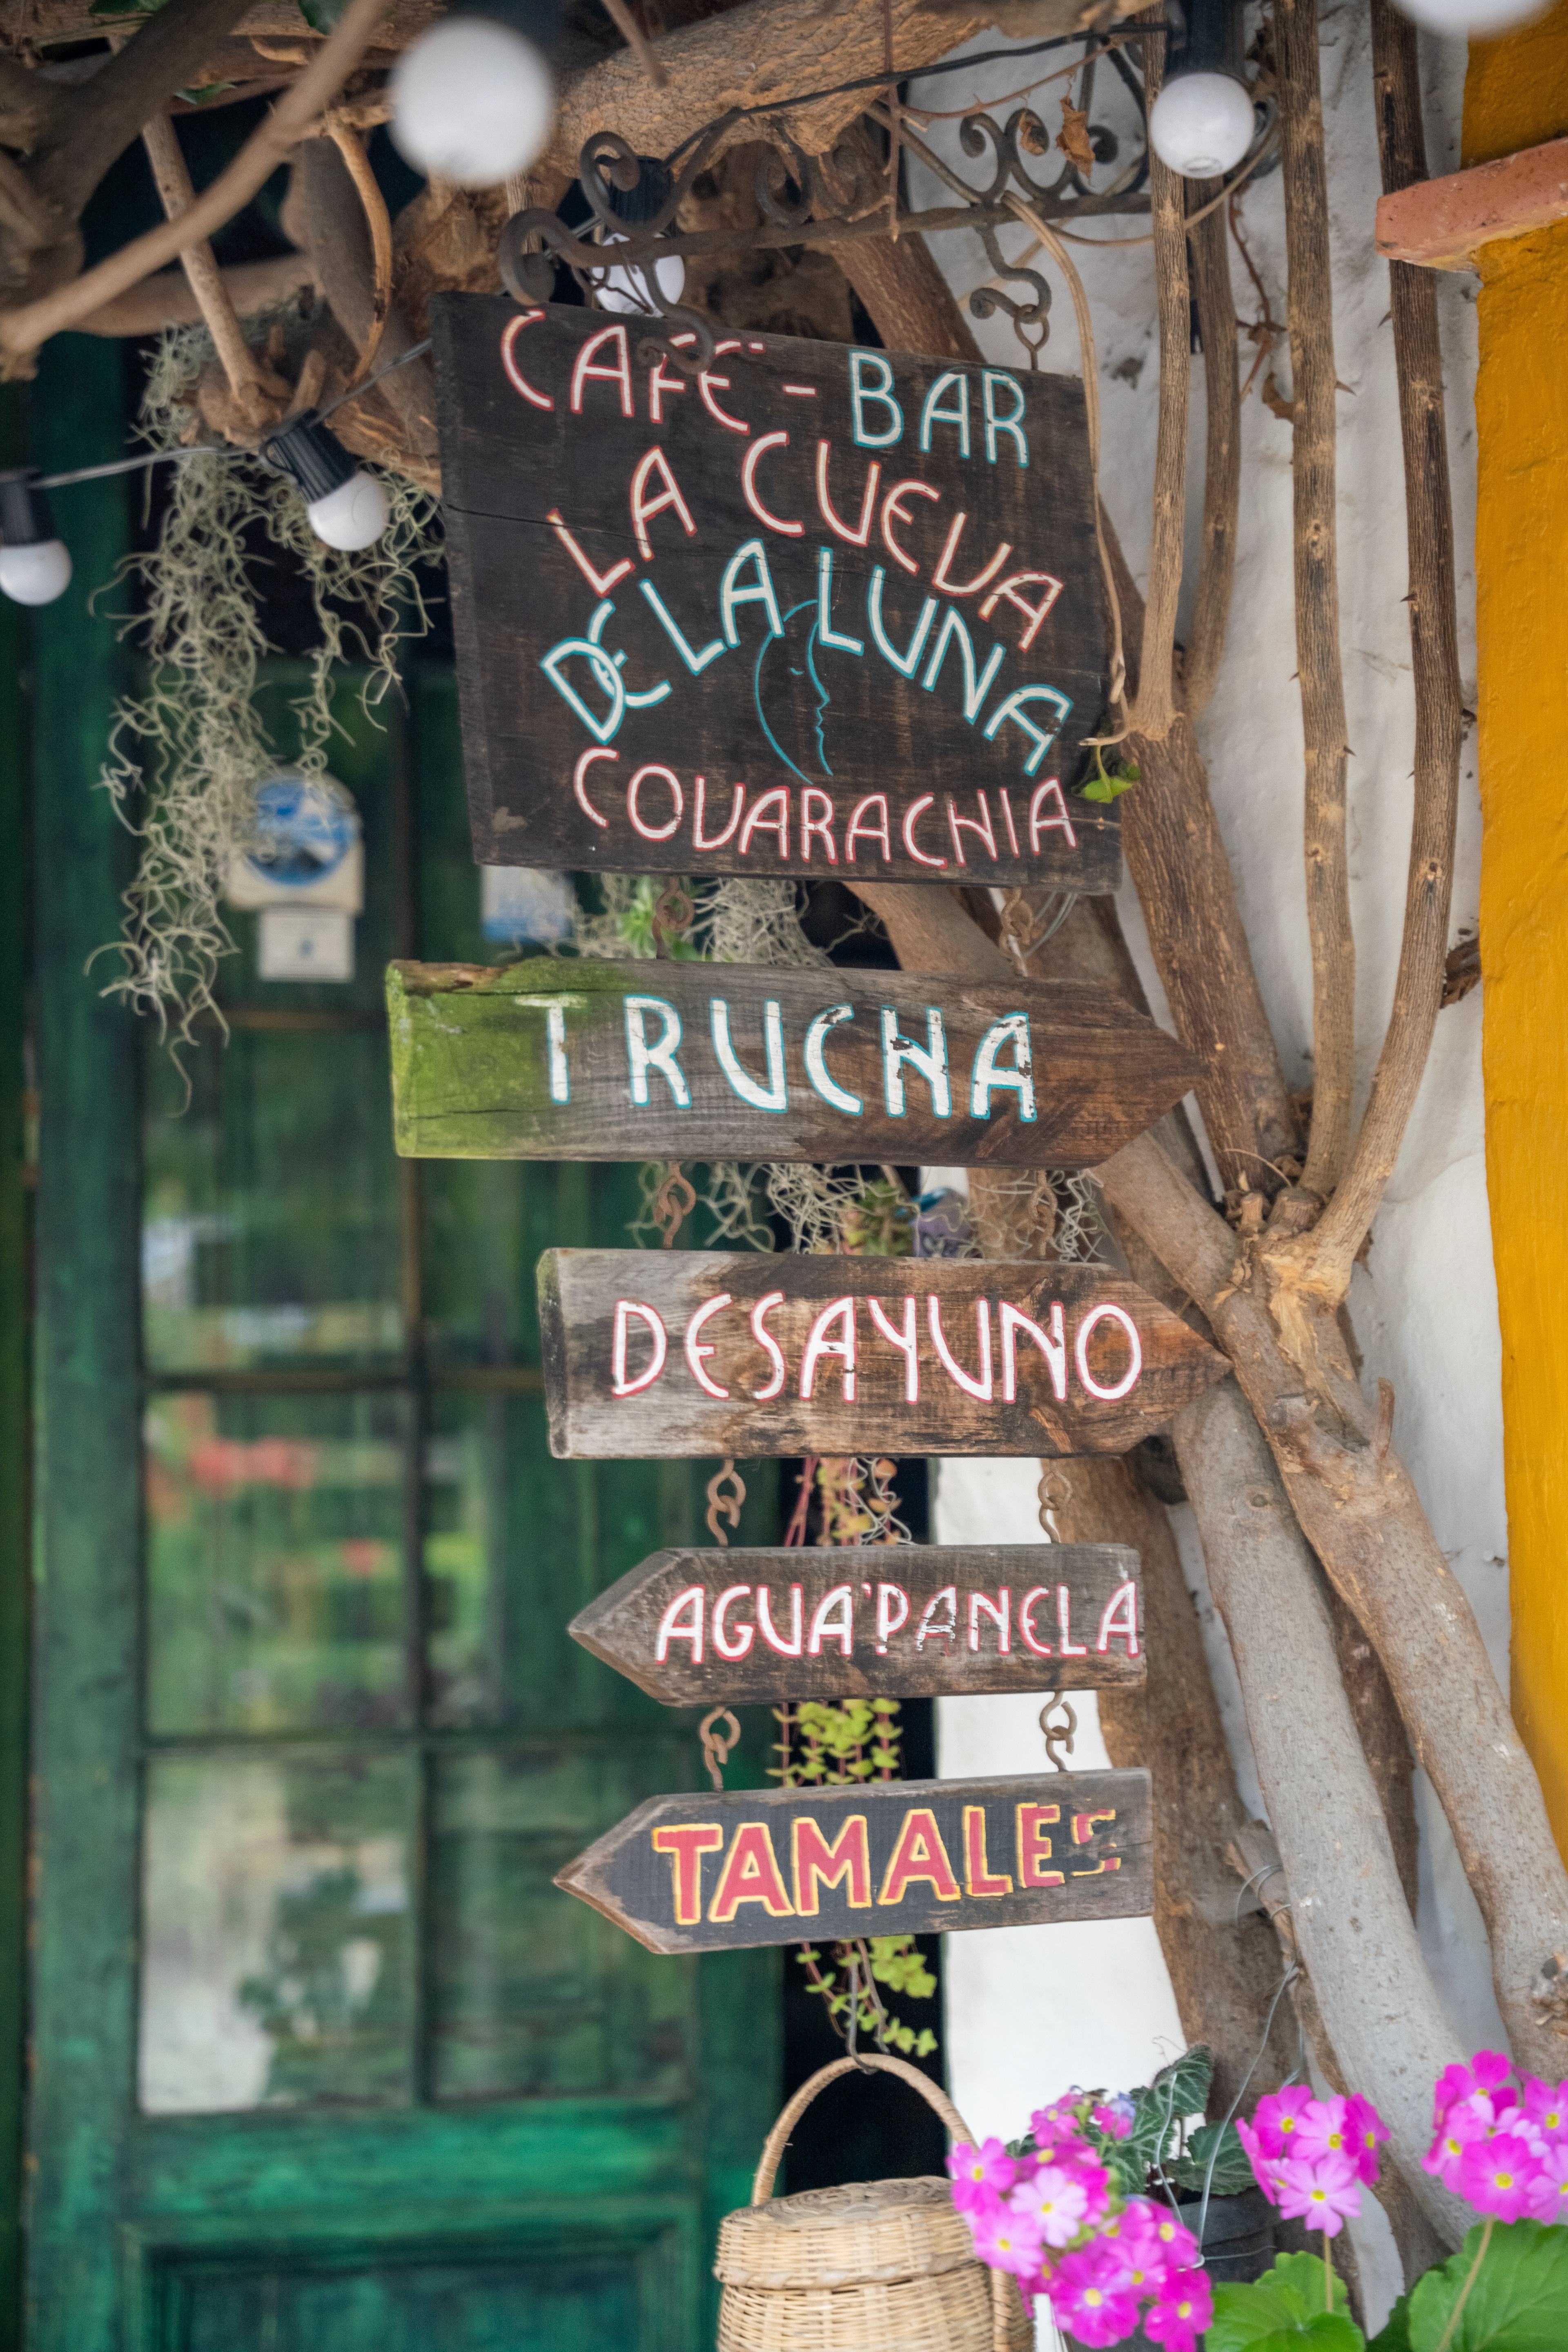 CAFE - BAR
LA CUEVA
DE LA LUNA
COVARACHIA
TRUCHA
DESAYUNO
AGUA'PANELA
TAMALES